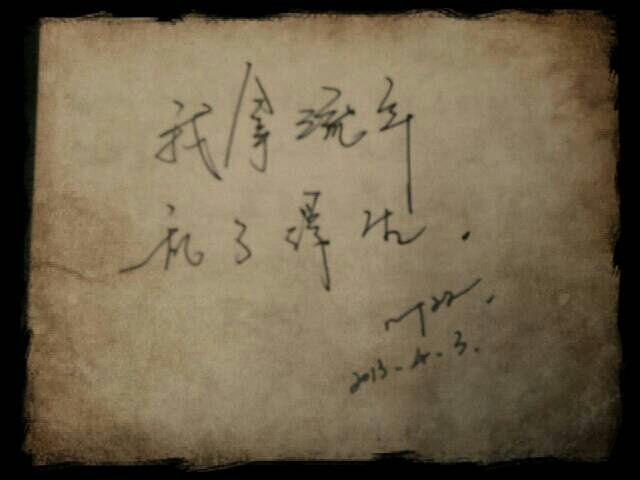 我拿流年
乱了浮生.
2013-4-3.